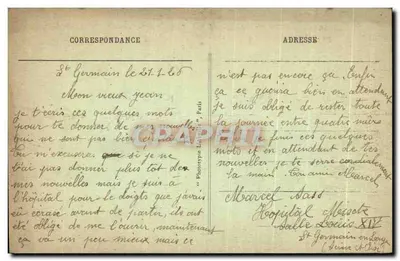 CORRESPONDANCE
ADRESSE
St Germain le 21.1.26
Mon vieux Jean
je t'écris ces quelques mots
pour te donner de mes nouvelles
qui ne sont pas bien
Tu m'excuseras si je ne
t'ai pas donner plus tôt de
mes nouvelles mais je suis à
l'hôpital pour le doigts que j'avais
eu écrasé avant de partir, ils ont
été obligé de me l'ouvrir maintenant
ça va un peu mieux mais ce
n'est pas encore ça. Enfin
ça se guerra bien en attendant
je suis obligé de rester toute
la journée entre quatre murs
je finis ces quelques
mots et en attendant de tes
nouvelles je te serre cordialement
la main. Ton ami Marcel
Marcel
Hopital Mixte
Salle Louis XIV
St Germain en Laye
(Seine et Oise)
Phototypie
Paris
CPAPHIL